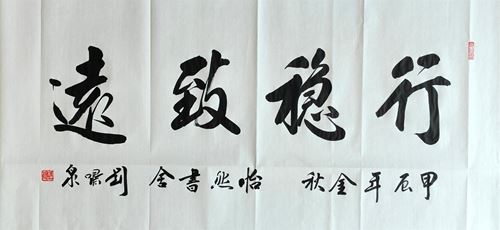 行稳致遠
甲辰年金秋 怡然書舍 刘啸泉